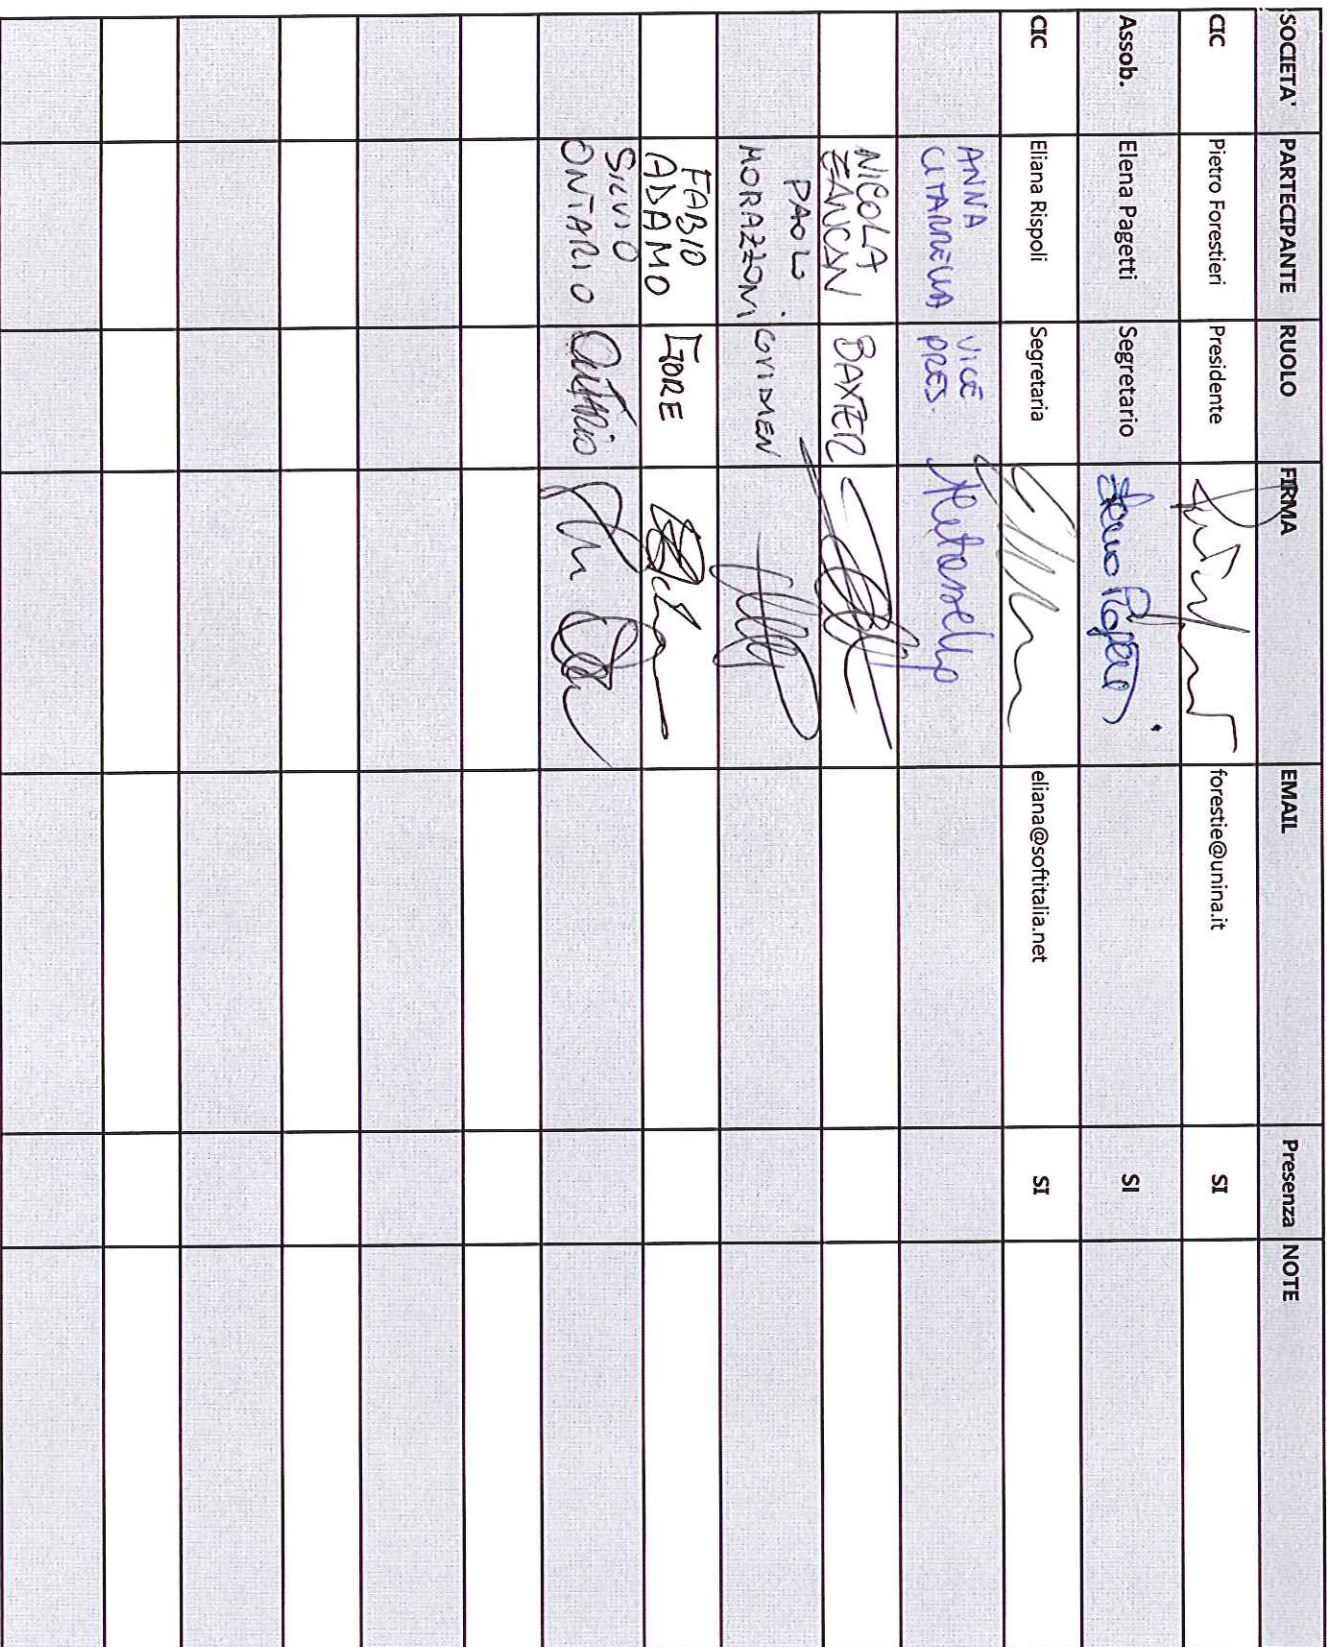 SOCIETA' PARTECIPANTE RUOLO FIRMA EMAIL Presenza NOTE
CIC Pietro Forestieri Presidente forestie@unina.it SI
Assob. Elena Pagetti Segretario SI
CIC Eliana Rispoli Segretaria eliana@softitalia.net SI
ANNA VICE
CITARRELLA PRES.
NICOLA
ZANCAN BAXTER
PAOLO
MORAZZONI GVIMEN
FABIO
ADAMO GORE
SILVIO
ONTARIO